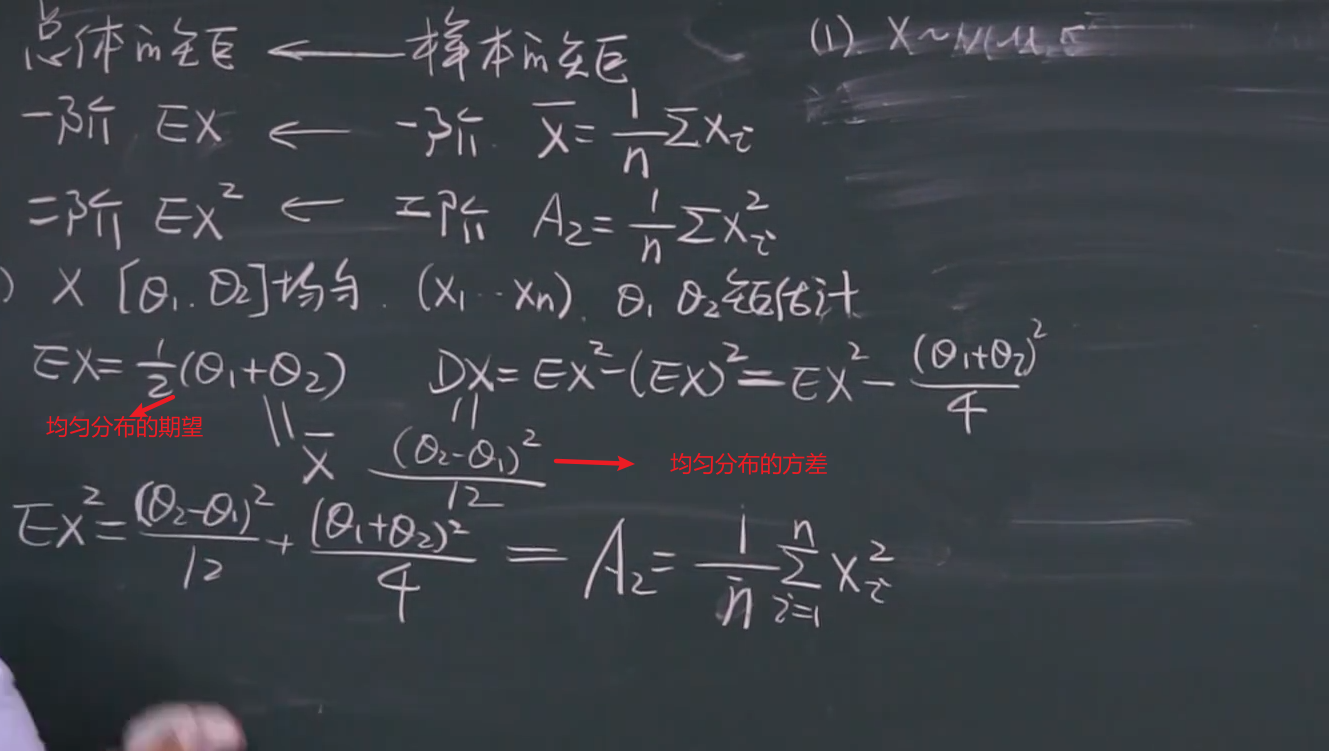 总体的矩 ← 样本的矩
(1) X~N(μ,σ
一阶 EX ← 一阶 X̄=1/n ΣXᵢ
二阶 EX² ← 二阶 A₂=1/n ΣXᵢ²
) X [θ₁..θ₂]均匀. (X₁…Xn). θ₁ θ₂矩估计
EX=1/2(θ₁+θ₂) DX=EX²-(EX)²=EX²-(θ₁+θ₂)²/4
均匀分布的期望
|| X̄ || (θ₂-θ₁)²/12
均匀分布的方差
EX²=(θ₂-θ₁)²/12+(θ₁+θ₂)²/4=A₂=1/n Σⁿᵢ₌₁ Xᵢ²